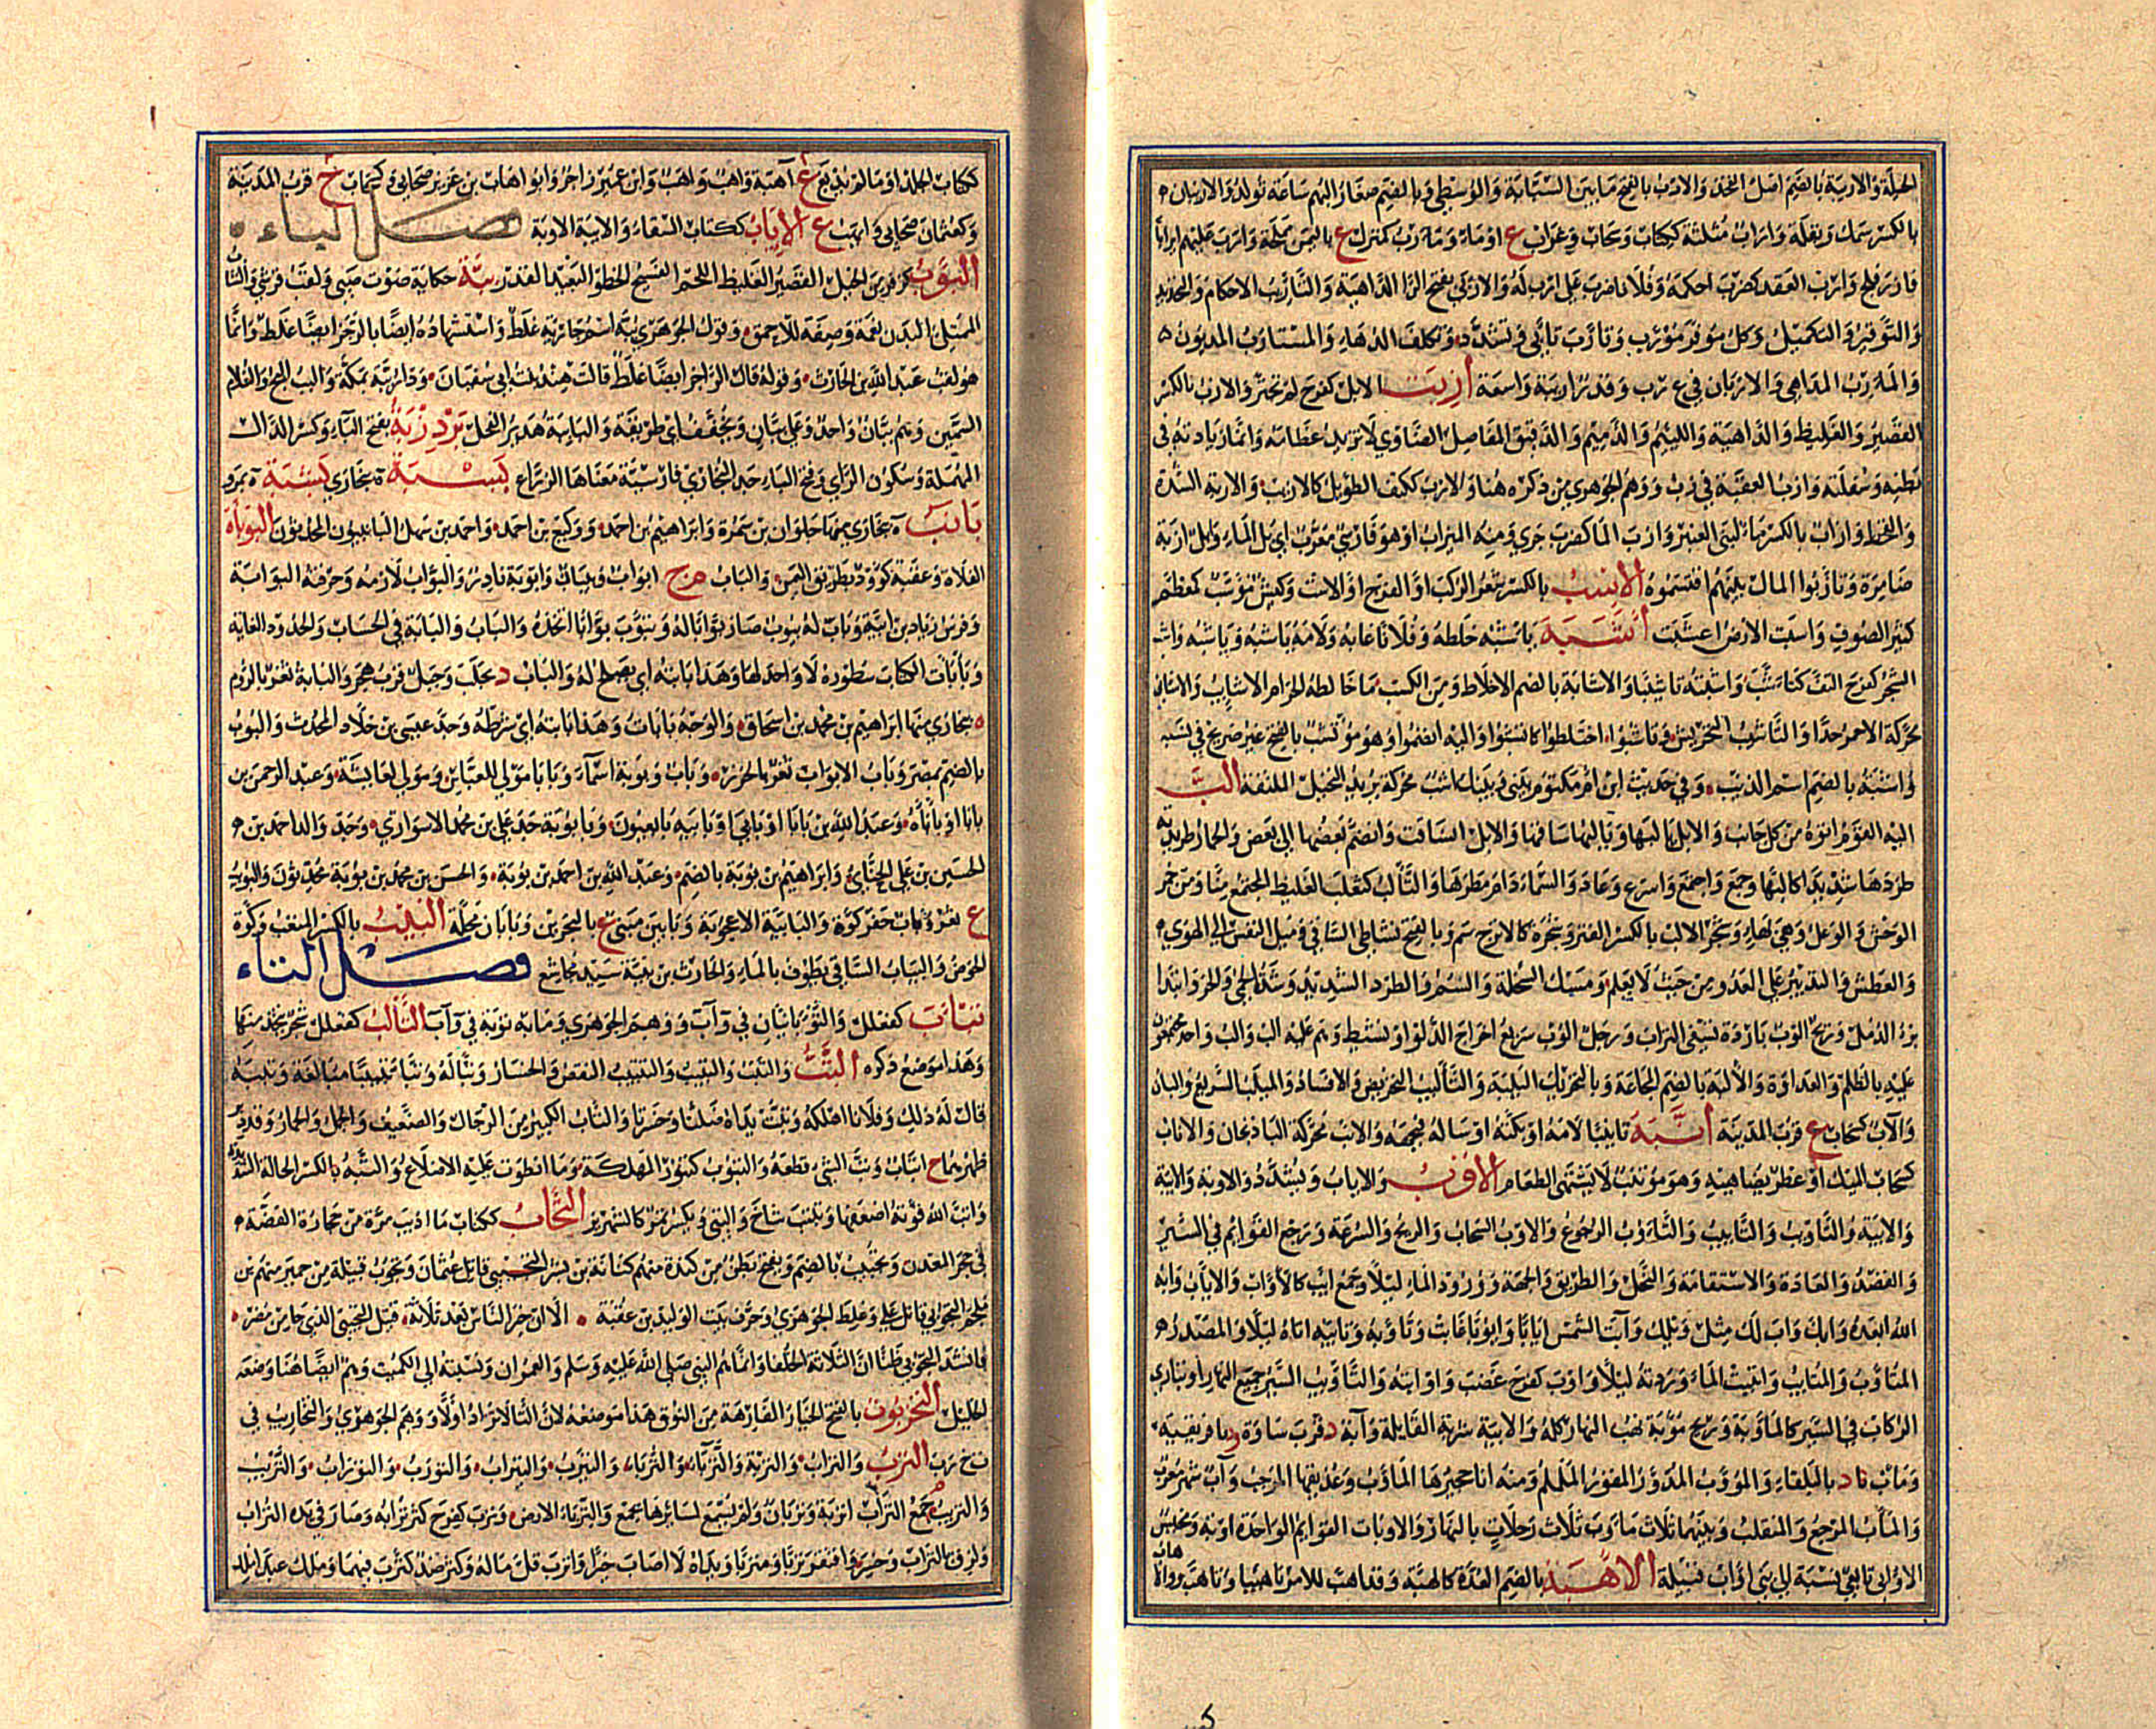 الحيلة والاربية بالضم اصل الفخذ والارب بالفتح مابين السبابة والوسطى وبالضم صغار البهم ساعة تولد والاربان
بالكسر سمك وبقلة واراب مثلثة ككتاب وسحاب وغراب ع او ماء ومارب كمنزل ع باليمن مملحة وارب عليهم ايرابا
فاز وفلج وارب العقد كضرب احكمه وفلانا ضرب على ارب له والاربى بفتح الراء الداهية والتاريب الاحكام والتحديد
والتوفير والتكميل وكل موفر مؤرب وتارب تابى وتشدد وتكلف الدهاء والمستارب المديون
والمآرب المداهي والاربان في ع رب وقدر اريبة واسعة ازبت الابل كفرح لم تجتر والازب بالكسر
القصير والغليظ والداهية واللئيم والدميم والدقيق المفاصل الضاوي لا تزيد عظامه وانما زيادته في
بطنه وسفلته وازب العقبة في زب ووهم الجوهري من ذكره هنا والازب ككتف الطويل كالازيب والازبة الشدة
والقحط وازاب بالكسر ماء لبني العنبر وازب الماء كضرب جرى ومنه الميزاب او هو فارسي معرب اي بل الماء وابل ازبة
ضامزة وتازبوا المال بينهم اقتسموه الاسب بالكسر شعر الركب او الفرج او الاست وكبش مؤسب كمعظم
كثير الصوف واسبت الارض اعشبت اشبه ياشبه خلطه وفلانا عابه ولامه ياشبه وياشبه واشب
الشجر كفرح التف كتاشب واشبته تاشيبا والاشابة بالضم الاخلاط ومن الكسب ما خالطه الحرام الاشايب والاشابي
محركة الاحمر جدا والتاشيب التحريش وتاشبوا اختلطوا كائتشبوا واليه انضموا وهو مؤتشب بالفتح غير صريح في نسبه
واشبة بالضم اسم الذيب وفي حديث ابن ام مكتوم بيني وبينك اشب محركة يريد النخيل الملتفة الب
اليه القوم اتوه من كل جانب والابل يالبها ويالبها ساقها والابل انساقت وانضم بعضها الى بعض والحمار طريدته
طردها شديدا كالبها وجمع واجتمع واسرع وعاد والسماء دام مطرها والتالب كثعلب الغليظ المجتمع منا ومن حمر
الوحش والوعل وهي بهاء وشجر الالب بالكسر الفتر وشجرة كالاترج سم وبالفتح نشاط الساقي وميل النفس الى الهوى
والعطش والتدبير على العدو من حيث لا يعلم ومسك السخلة والسم والطرد الشديد وشدة الحمى والحر وابتداء
برء الدمل وريح الوب باردة تسفي التراب ورجل الوب سريع اخراج الدلو او نشيط وهم عليه الب والب واحد مجتمعون
عليه بالظلم والعداوة والالبة بالضم المجاعة وبالتحريك اليلبة والتاليب التحريض والافساد والميلب السريع والبان
والآب كسحاب ع قرب المدينة انبه تانيبا لامه او بكته او ساله فنجهه والانب محركة الباذنجان والاناب
كسحاب المسك او عطر يضاهيه وهو مؤتنب لا يشتهي الطعام الاوب والاياب ويشدد والاوبة والايبة
والايبة والتاويب والتاييب والتاوب الرجوع والاوب السحاب والريح والسرعة ورجع القوائم في السير
والقصد والعادة والاستقامة والنحل والطريق والجهة وورود الماء ليلا وجمع ايب كالاواب والاياب وآبه
الله ابعده وآبك وآب لك مثل ويلك وآبت الشمس ايابا وايوبا غابت وتاوبه وتايبه اتاه ليلا والمصدر
المتاوب والمتايب وائتيبت الماء وردته ليلا واوب كفرح غضب واوابته والتاويب السير جميع النهار او تباري
الركاب في السير كالماوبة وريح مؤبة تهب النهار كله والآيبة شربة القائلة وآبة د قرب ساوة ود بافريقية
ومآب د بالبلقاء والمؤوب المدور المقور الململم ومنه انا حجيرها الماوب وعذيقها المرجب وآب شهر معرب
والمآب المرجع والمنقلب وبينهما ثلاث مآوب ثلاث رحلات بالنهار والاوبات القوائم الواحدة اوبة ومخيس
الاوابي تابعي نسبة الى بني اواب قبيلة الاهبة بالضم العدة كالهبة وقد اهب للامر تاهيبا وتاهب والاهاب
ككتاب الجلد او ما لم يدبغ ج آهبة واهب واهب وابن عمير راجز وابو اهاب بن عزيز صحابي وكسحاب ع قرب المدينة
وكعثمان صحابي وايهب ع الاياب ككتاب السقاء والايبة الاوبة فصل الباء
البوب كزفر من الخيل القصير الغليظ اللحم الفسيح الخطو البعيد القدر ببة حكاية صوت صبي ولقب قرشي والشاب
الممتلئ البدن نعمة وصفة للاحمق وقول الجوهري ببة اسم جارية غلط واستشهاده ايضا بالرجز ايضا غلط وانما
هو لقب عبد الله بن الحارث وقوله قال الراجز ايضا غلط قالت هند بنت ابي سفيان ودار ببة بمكة والبب الباج والغلام
السمين وهم ببان واحد وعلى ببان ويخفف اي طريقة والبابية هدير الفحل بردزبة بفتح الباء وكسر الدال
المهملة وسكون الزاي وفتح الباء جد البخاري فارسية معناها الزراع بسبة ة ببخارى بشبة ة بمرو
بابب ة ببخارى منها حلوان بن سمرة وابراهيم بن احمد ووكيع بن احمد واحمد بن سهل البانبيون المحدثون البوباة
الفلاة وعقبة كؤود بطريق اليمن والباب م ج ابواب وبيبان وابوبة نادر والبواب لازمه وحرفته البوابة
وفرس زياد بن ابيه وباب له يبوب صار بوابا له وتبوب بوابا اتخذه والباب والبابة في الحساب والحدود الغاية
وبابات الكتاب سطوره لا واحد لها وهذا بابته اي يصلح له والباب د بحلب وجبل قرب هجر والبابة ثغر بالروم
ة ببخارى منها ابراهيم بن محمد بن اسحاق والوجه بابات وهذا بابته اي شرطه وجد عيسى بن خلاد المحدث والبوب
بالضم ة بمصر وباب الابواب ثغر بالخزر وباب وبوبة اسماء وبابا مولى للعباس ومولى لعايشة وعبد الرحمن بن
بابا او باباه وعبد الله بن بابا او بابى او بابيه تابعيون وبابوية جد علي بن محمد الاسواري وجد والد احمد بن
الحسين بن علي الحنائي وابراهيم بن بوبة بالضم وعبد الله بن احمد بن بوبة والحسن بن محمد بن بوبة محدثون والبويب
ع ثغر وباب حفر كوة والبابية الاعجوبة وبابين مثنى ع بالبحرين وبابان محلة البيب بالكسر المثعب وكوة
الحوض والبياب الساقي يطوف بالماء والحارث بن بيبة سيد مجاشع فصل التاء
تيأب كفعلل والتوءبانيان في وآب ووهم الجوهري وما به تؤبة في وآب التالب كفعلل شجر يتخذ منه
وهذا موضع ذكره التب والتبب والتباب والتبيب والتتبيب النقص والخسار وتبا له وتبا تبيبا مبالغة وتببه
قال له ذلك وفلانا اهلكه وتبت يداه ضلتا وخسرتا والتاب الكبير من الرجال والضعيف والجمل والحمار قد دبر
ظهرهما ج اتباب وتب الشيء قطعه والتبوب كتنور المهلكة وما انطوت عليه الاضلاع والتبة بالكسر الحالة الشديدة
واتب الله قوته اضعفها وتبتب شاخ والتبي ويكسر تمر كالشهريز التجاب ككتاب ما اذيب مرة من حجارة الفضة
في حجر المعدن وتجيب بالضم ويفتح بطن من كندة منهم كنانة بن بشر التجيبي قاتل عثمان وتجوب قبيلة من حمير منهم ابن
ملجم التجوبي قاتل علي وغلط الجوهري وحرف بيت الوليد بن عقبة الا ان خير الناس بعد ثلاثة قتيل التجيبي الذي جاء من مضر
فانشد التجوبي ظنا ان الثلاثة الخلفاء وانما هم النبي صلى الله عليه وسلم والعمران ونسبته الى الكميت وهم ايضا هنا وضعه
الخليل التخربوت بالفتح الخيار الفارهة من النوق هذا موضعه لان التاء لا تزاد اولا ووهم الجوهري والتخاريب في
ن خ رب الترب والتراب والتربة والترباء والترباء والتيرب والتيراب والتورب والتوراب والتريب
والتريب م وجمع التراب اتربة وتربان ولم يسمع لسائرها بجمع والترباء الارض وترب كفرح كثر ترابه وصار في يده التراب
ولزق بالتراب وخسر وافتقر تربا ومتربا ويداه لا اصاب خيرا واترب قل ماله وكثر ضد كترب فيهما وملك عبدا ملك